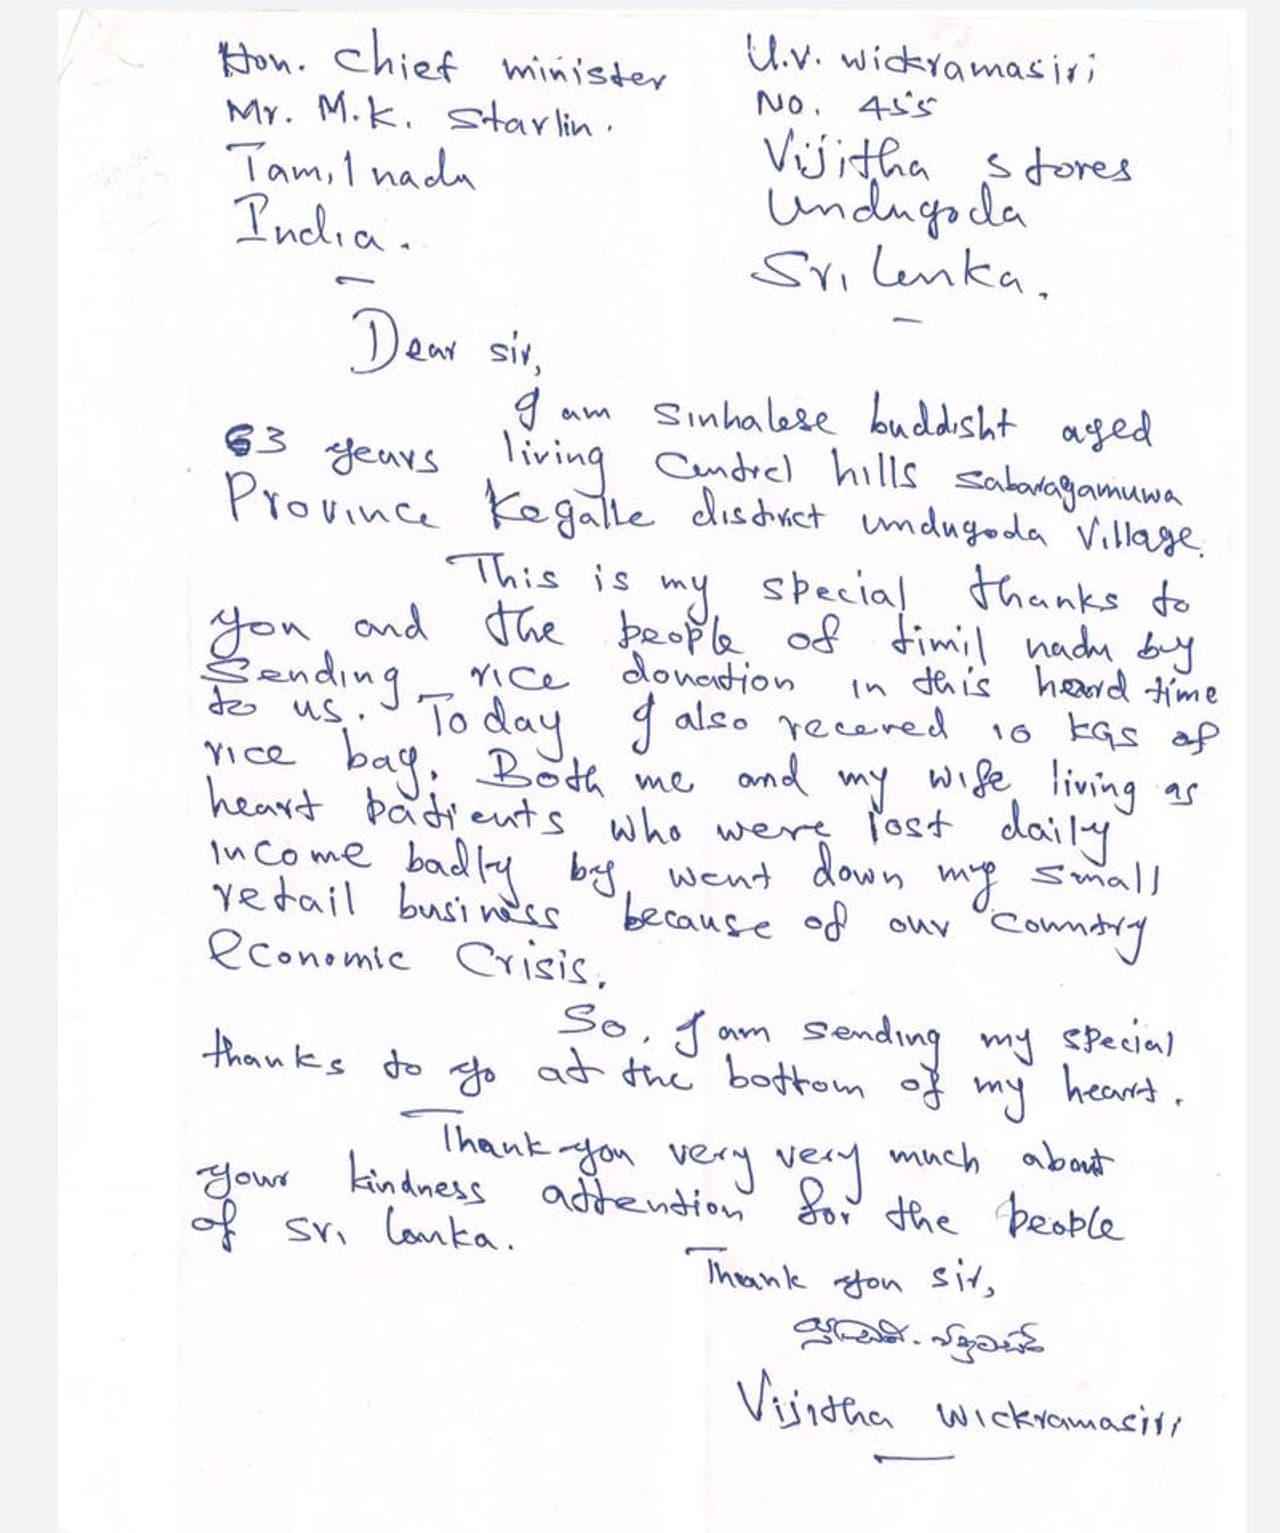 Hon. Chief minister
Mr. M.K. Starlin.
Tamil nadu
India.
U.V. Wickramasiri
No. 455
Vijitha stores
Undugoda
Sri Lanka.
Dear sir,
I am sinhalese buddisht aged
63 years living Centrel hills sabaragamuwa
Province Kegalle district undugoda Village.
This is my special thanks to
you and the people of timil nadu by
Sending rice donation in this heard time
to us. Today I also recered 10 KGs of
rice bag. Both me and my wife living as
heart patients who were lost daily
income badly by went down my small
retail business because of our country
economic Crisis.
So, I am sending my special
thanks to yo at the bottom of my heart.
Thank you very very much about
your kindness attention for the people
of Sri Lanka.
Thank you sir,
Vijitha Wickramasiri